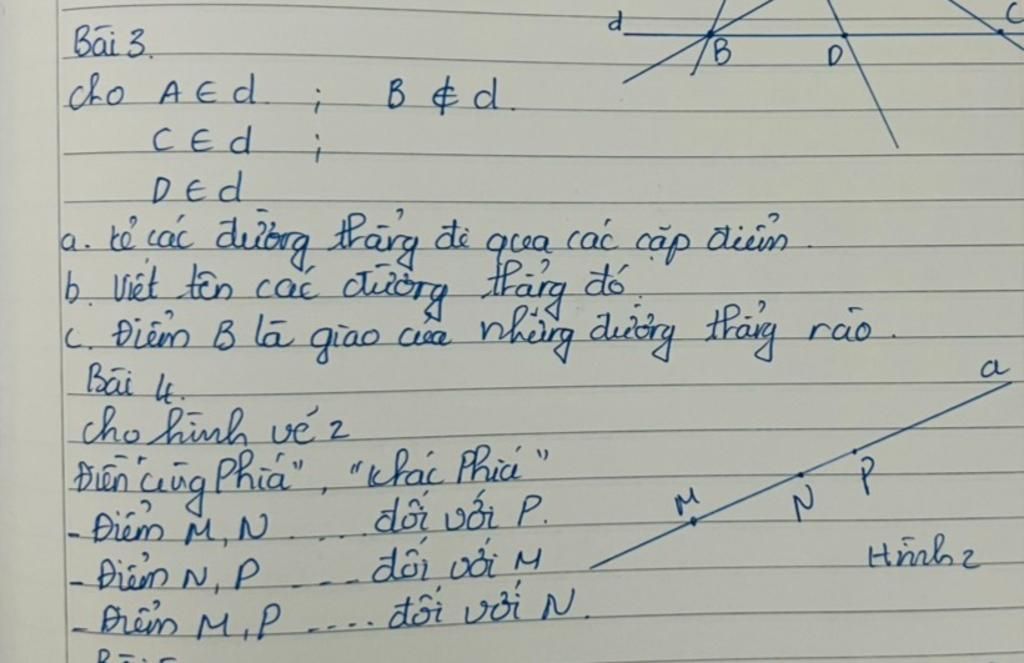 d
B
D
C
Bài 3.
Cho A ∈ d ; B ∉ d.
C ∈ d ;
D ∈ d
a. kẻ các đường thẳng đi qua các cặp điểm.
b. Viết tên các đường thẳng đó.
c. Điểm B là giao của những đường thẳng nào.
Bài 4.
Cho hình vẽ 2
Điền "cùng Phía", "khác Phía"
- Điểm M, N .... đối với P.
- Điểm N, P .... đối với M
- Điểm M, P .... đối với N.
a
M
N
P
Hình 2